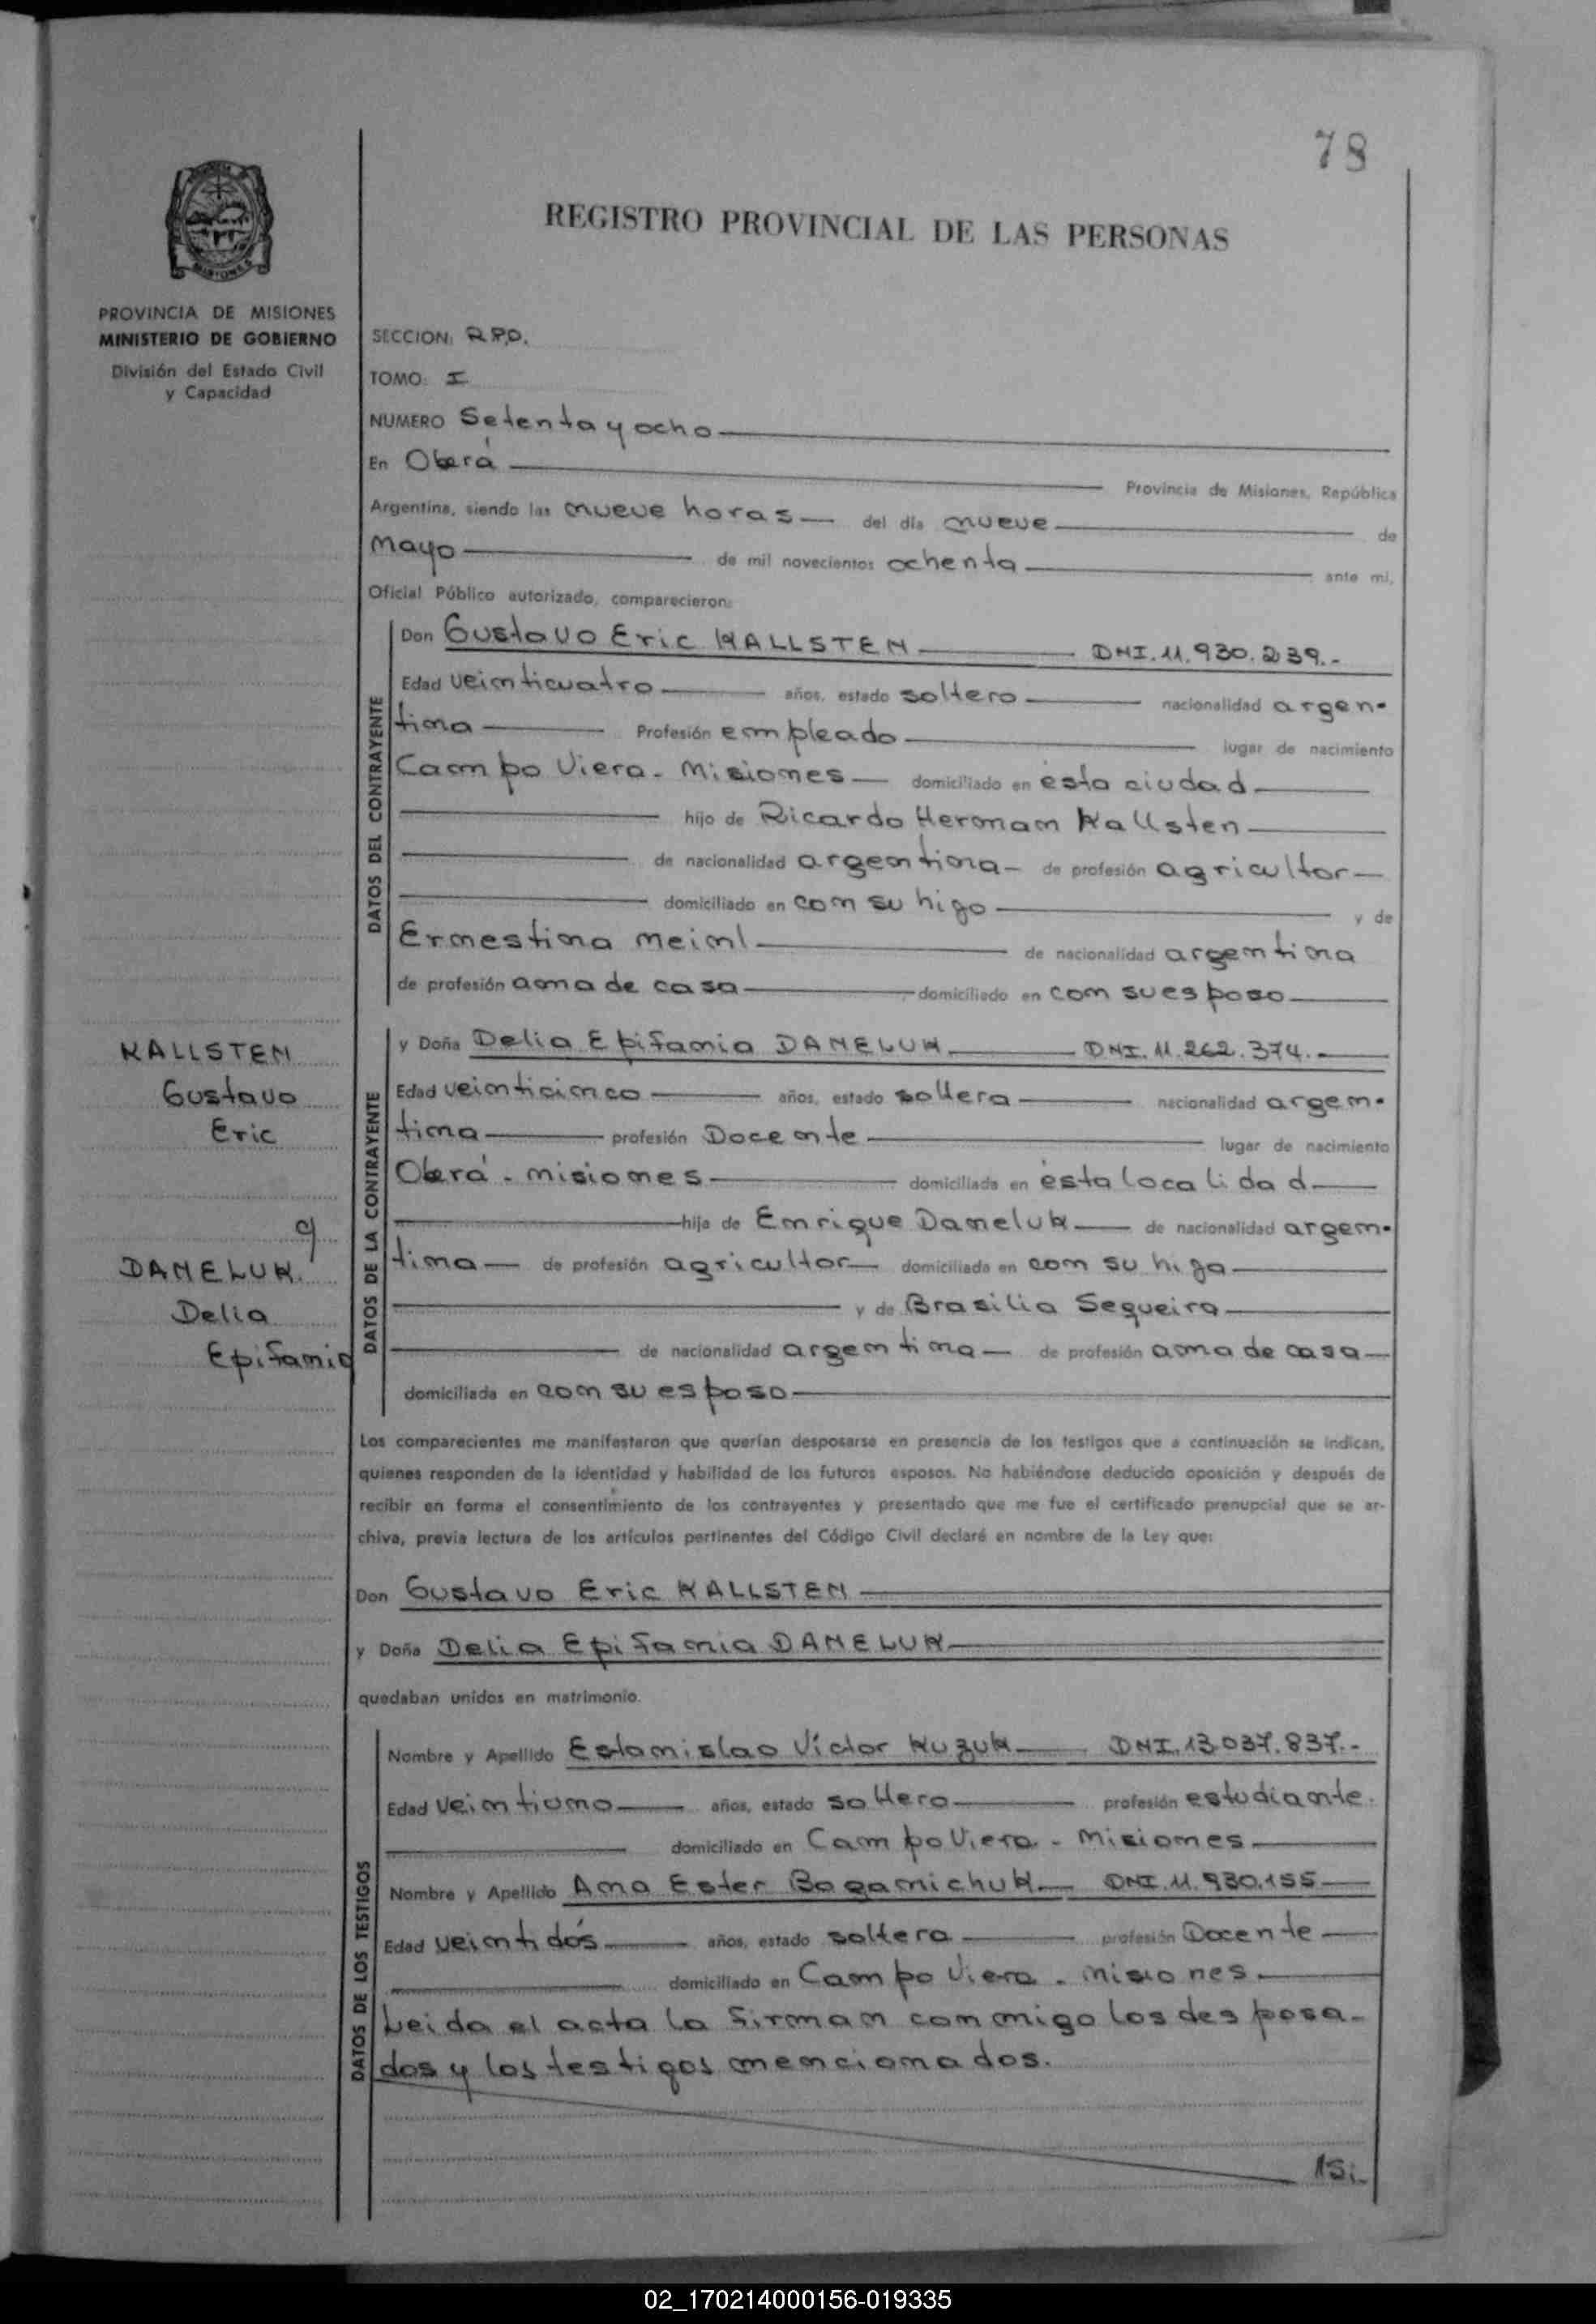 78
REGISTRO PROVINCIAL DE LAS PERSONAS
MISIONES
PROVINCIA DE MISIONES
MINISTERIO DE GOBIERNO
División del Estado Civil
y Capacidad
SECCION: R.P.D.
TOMO: I
NUMERO Setenta y ocho
En Oberá Provincia de Misiones, República
Argentina, siendo las nueve horas del día nueve de
Mayo de mil novecientos ochenta ante mi,
Oficial Público autorizado, comparecieron:
DATOS DEL CONTRAYENTE
Don Gustavo Eric KALLSTEN DNI. 11.930.239.-
Edad veinticuatro años, estado soltero nacionalidad argen-
tina Profesión empleado lugar de nacimiento
Campo Viera - Misiones domiciliado en ésta ciudad
hijo de Ricardo Herman Kallsten
de nacionalidad argentina de profesión agricultor
domiciliado en con su higo y de
Ernestina Meinl de nacionalidad argentina
de profesión ama de casa domiciliado en con su esposo
KALLSTEN
Gustavo
Eric
c/
DANELUK
Delia
Epifania
DATOS DE LA CONTRAYENTE
y Doña Delia Epifania DANELUK DNI. 11.262.374.-
Edad veinticinco años, estado soltera nacionalidad argen-
tina profesión Docente lugar de nacimiento
Oberá - Misiones domiciliada en ésta localidad
hija de Enrique Daneluk de nacionalidad argen-
tina de profesión agricultor domiciliada en con su higa
y de Brasilia Sequeira
de nacionalidad argentina de profesión ama de casa
domiciliada en con su esposo
Los comparecientes me manifestaron que querían desposarse en presencia de los testigos que a continuación se indican,
quienes responden de la identidad y habilidad de los futuros esposos. No habiéndose deducido oposición y después de
recibir en forma el consentimiento de los contrayentes y presentado que me fue el certificado prenupcial que se ar-
chiva, previa lectura de los artículos pertinentes del Código Civil declaré en nombre de la Ley que:
Don Gustavo Eric KALLSTEN
y Doña Delia Epifania DANELUK
quedaban unidos en matrimonio.
DATOS DE LOS TESTIGOS
Nombre y Apellido Estanislao Víctor Kuzuk DNI. 13.037.837.-
Edad veintiuno años, estado soltero profesión estudiante.
domiciliado en Campo Viera - Misiones
Nombre y Apellido Ana Ester Boganichuk DNI. 11.930.155
Edad veintidós años, estado soltera profesión Docente
domiciliado en Campo Viera - Misiones.
Leida el acta la firman conmigo los desposa-
dos y los testigos mencionados.
02_170214000156-019335